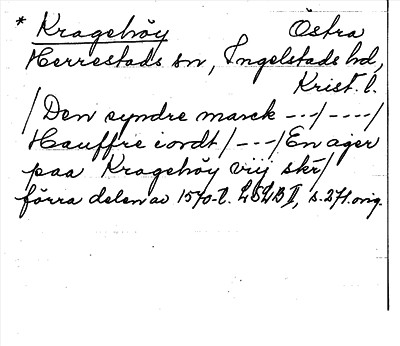 * Kragehöy Östra
Herrestads sn, Ingelstads hd,
Krist. l.
/Den syndre marck ---/----/
Hauffre iordt/---/En ager
paa Kragehöy vij skr/
förra delen av 1570-t. LSLB II, s. 271. orig.